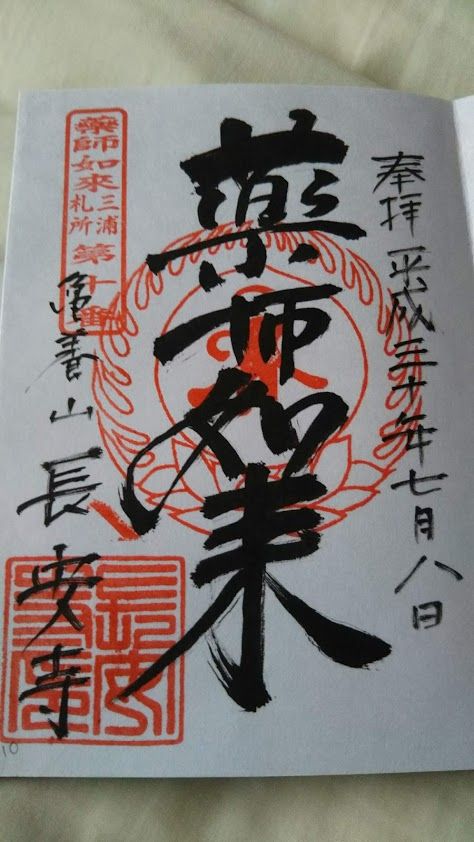 奉拝 平成三十年七月八日
藥師如来
藥師如來三浦札所第十番
養山 長安寺
10